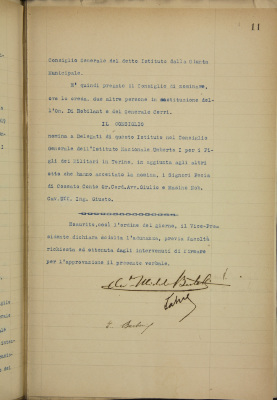 11
Consiglio Generale del detto Istituto dalla Giunta
Municipale.
E' quindi pregato il Consiglio di nominare,
ove lo creda, due altre persone in sostituzione del-
l'On. Di Robilant e del Generale Cerri.
IL CONSIGLIO
nomina a Delegati di questo Istituto nel Consiglio
Generale dell'Istituto Nazionale Umberto I per i Fi-
gli dei Militari in Torino, in aggiunta agli altri
otto che hanno accettato la nomina, i Signori
di Cossola Conte Avv. Giulio e Nob.
Cav. Uff. Ing. Giusto.
Esaurito, così l'ordine del giorno, il Vice-Pre-
sidente dichiara sciolta l'adunanza, previa facoltà
richiesta ed ottenuta dagli intervenuti di firmare
per l'approvazione il presente verbale.